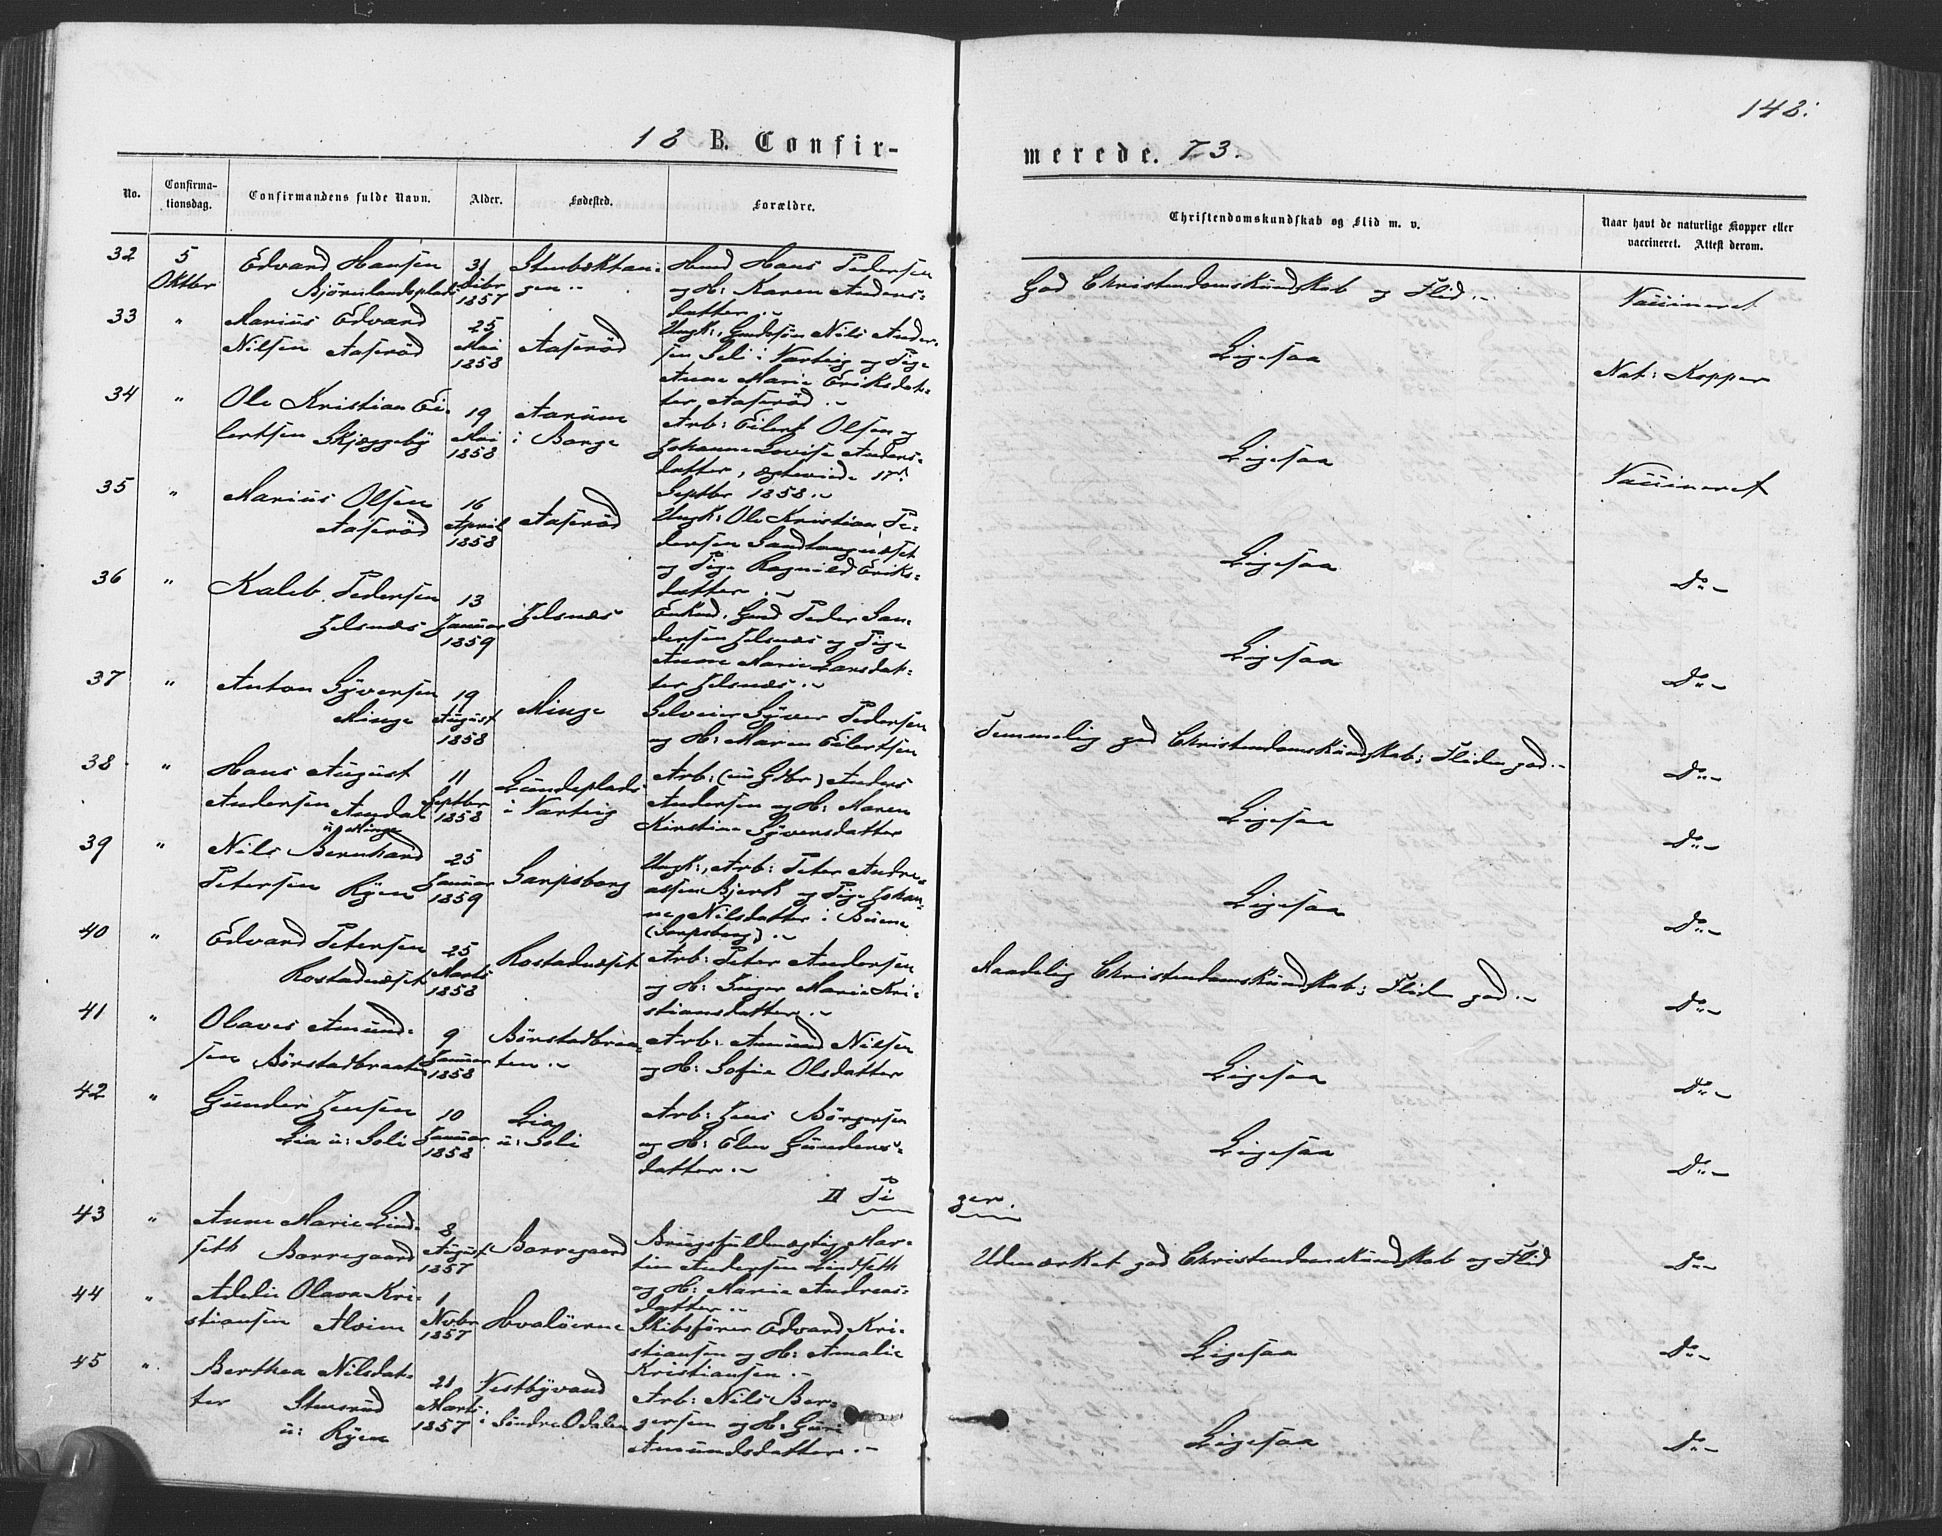 148.
18 B. Confir-
merede. 73.
No.
Confirma-
tionsdag.
Confirmandens fulde Navn.
Alder.
Fødested.
Forældre.
Christendomskundskab og Flid m. v.
Naar havt de naturlige Kopper eller
vaccineret. Attest derom.
32
5
Oktbr
Edvard Hansen
Bjørnlandsplads
31
Debr
1857
Stenbektan-
gen
Hmd Hans Pedersen
og H: Karen Anders-
datter
God Christendomskundskab og Flid
Vaccineret
33
"
Marius Edvard
Nilsen Aaserød
25
Mai
1858
Aaserød
Ungk:, Gmdssøn Nils Ander-
sen Soli i Varteig og Pige
Anne Marie Eriksdat-
ter Aaserød
Ligesaa
Nat: Kopper
34
"
Ole Kristian Ei-
lertsen Skjæggeby
19
Mai
1858
Aarum
i Borge
Arb: Eilert Olsen og
Johanne Lovise Anders-
datter, ægteviede 17d
Septbr 1858
Ligesaa
Vaccineret
35
"
Marius Olsen
Aaserød
16
April
1858
Aaserød
Ungk: Ole Kristian Pe-
dersen Sandtangnæset
og Pige Ragnild Eriks-
datter
Ligesaa
Do
36
"
Kaleb Pedersen
Jelsnæs
13
Januar
1859
Jelsnæs
Enkmd, Gmd Peder San-
dersen Jelsnæs og Pige
Anne Marie Larsdat-
ter Jelsnæs
Ligesaa
Do
37
"
Anton Syversen
Minge
19
August
1858
Minge
Selveier Syver Pedersen
og H: Maren Eilertsen
Temmelig god Christendomskundskab; Fliden god
Do
38
"
Hans August
Andersen Aandal
u: Minge
11
Septbr
1858
Lundeplads
i Varteig
Arb: Anders
Andersen og H: Maren
Kirstine Syversdatter
Ligesaa
Do
39
"
Nils Bernhard
Petersen Ryen
25
Januar
1859
Sarpsborg
Ungk:, Arb: Peter Andre-
assen Bjerk og Pige Johan-
ne Nilsdatter i Byene
(Sarpsborg)
Ligesaa
Do
40
"
Edvard Petersen
Rostadnæset
25
Marts
1858
Rostadnæset
Arb: Peter Andersen
og H: Inger Marie Kri-
stiansdatter
Maadelig Christendomskundskab; Fliden god
Do
41
"
Olaves Amund-
sen Børstadbraaten
9
Januar
1858
Børstadbraa-
ten
Arb: Amund Nilsen
og H: Sofie Olsdatter
Ligesaa
Do
42
"
Gunder Jensen
Lia u: Soli
10
Januar
1858
Lia
u: Soli
Arb: Jens Børgersen
og H: Elen Gunders-
datter
Ligesaa
Do
II Pi
ger.
43
"
Anne Marie Lind-
seth Borregaard
8
August
1857
Borregaard
Brugsfuldmægtig Mar-
tin Andersen Lindseth
og H: Marie Andreas-
datter
Udmærket god Christendomskundskab og Flid
Do
44
"
Adele Olava Kri-
stiansen Alvim
1
Novbr
1857
Hvaløerne
Skibsfører Edvard Kri-
stiansen og H: Amalie
Kristiansen
Ligesaa
Do
45
"
Berthea Nilsdat-
ter Stensrud
u: Ryen
21
Marts
1857
Vestbyvand
i Søndre Odalen
Arb: Nils Ber-
gersen og H: Guri
Amundsdatter
Ligesaa
Do